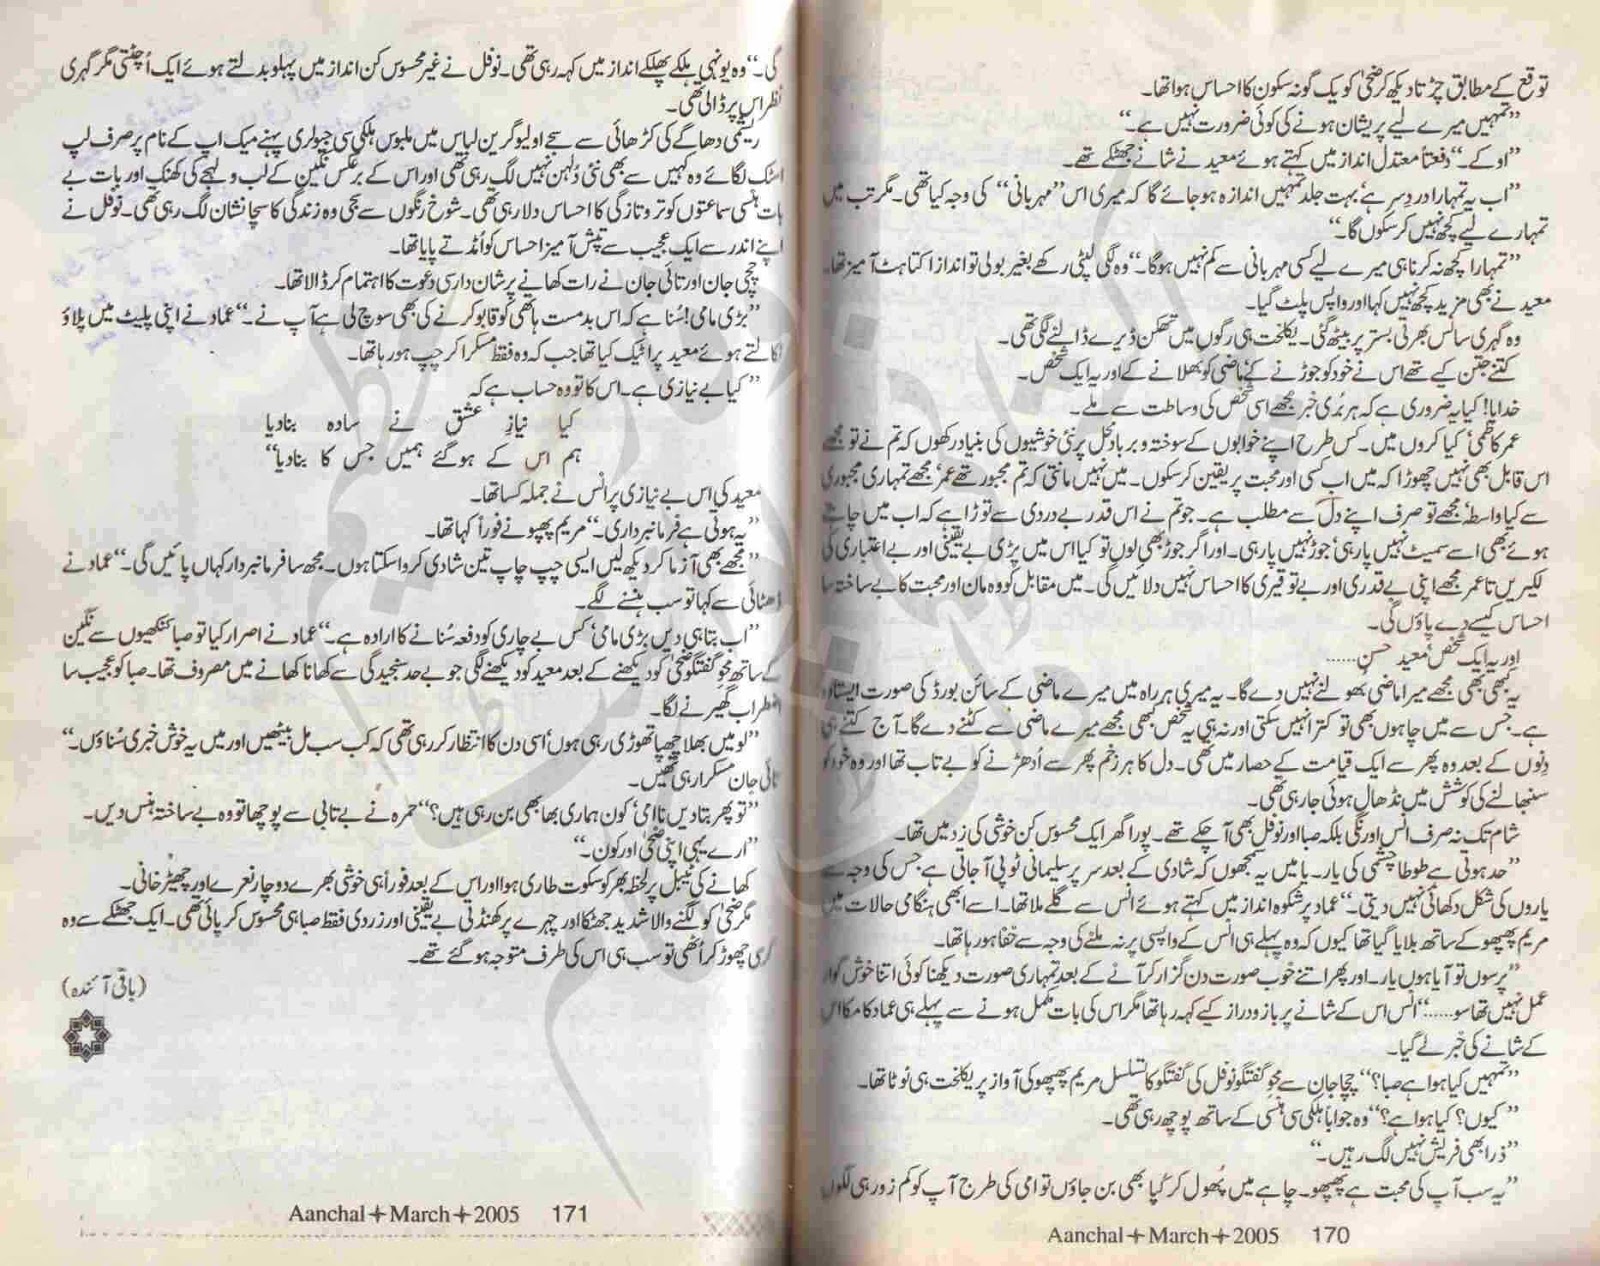 توقع کے مطابق چڑتا دیکھ کر ضحیٰ کو یک گونہ سکون کا احساس ہوا تھا۔
”تمہیں میرے لیے پریشان ہونے کی کوئی ضرورت نہیں ہے۔“
”اوکے۔“ دفعتاً معتدل انداز میں کہتے ہوئے معید نے شانے جھٹکے تھے۔
”اب یہ تمہارا درد سر ہے‘ بہت جلد تمہیں اندازہ ہو جائے گا کہ میری اس ”مہربانی“ کی وجہ کیا تھی۔ مگر تب میں
تمہارے لیے کچھ نہیں کر سکوں گا۔“
”تمہارا کچھ نہ کرنا ہی میرے لیے کسی مہربانی سے کم نہیں ہوگا۔“ وہ لگی لپٹی رکھے بغیر بولی تو انداز اکتاہٹ آمیز تھا۔
معید نے بھی مزید کچھ نہیں کہا اور واپس پلٹ گیا۔
وہ گہری سانس بھرتی بستر پر بیٹھ گئی۔ یکلخت ہی رگوں میں تھکن ڈیرے ڈالنے لگی تھی۔
کتنے جتن کیے تھے اس نے خود کو جوڑنے کے‘ ماضی کو بھلانے کے اور یہ ایک شخص۔
خدایا! کیا یہ ضروری ہے کہ ہر بُری خبر مجھے اسی شخص کی وساطت سے ملے۔
عمر کاظمی‘ کیا کروں میں۔ کس طرح اپنے خوابوں کے سوختہ و برباد محل پر نئی خوشیوں کی بنیاد رکھوں کہ تم نے تو مجھے
اس قابل بھی نہیں چھوڑا کہ میں اب کسی اور محبت پر یقین کر سکوں۔ میں نہیں مانتی کہ تم مجبور تھے عمر‘ مجھے تمہاری مجبوری
سے کیا واسطہ‘ مجھے تو صرف اپنے دل سے مطلب ہے۔ جو تم نے اس قدر بے دردی سے توڑا ہے کہ اب میں چاہتے
ہوئے بھی اسے سمیٹ نہیں پا رہی‘ جوڑ نہیں پا رہی۔ اور اگر جوڑ بھی لوں تو کیا اس میں پڑی بے یقینی اور بے اعتباری کی
لکیریں تا عمر مجھے اپنی بے قدری اور بے توقیری کا احساس نہیں دلائیں گی۔ میں مقابل کو وہ مان اور محبت کا بے ساختہ سا
احساس کیسے دے پاؤں گی۔
اور یہ ایک شخص‘ معید حسن......
یہ کبھی بھی مجھے میرا ماضی بھولنے نہیں دے گا۔ یہ میری ہر راہ میں میرے ماضی کے سائن بورڈ کی صورت ایستادہ
ہے۔ جس سے میں چاہوں بھی تو کترا نہیں سکتی اور نہ ہی یہ شخص کبھی مجھے میرے ماضی سے کٹنے دے گا۔ آج کتنے ہی
دنوں کے بعد وہ پھر سے ایک قیامت کے حصار میں تھی۔ دل کا ہر زخم پھر سے اُدھڑنے کو بے تاب تھا اور وہ خود کو
سنبھالنے کی کوشش میں نڈھال ہوئی جا رہی تھی۔
شام تک نہ صرف انس اور نگی بلکہ صبا اور نوفل بھی آ چکے تھے۔ پورا گھر ایک محسوس کن خوشی کی زد میں تھا۔
”حد ہوتی ہے طوطا چشمی کی یار۔ یا میں یہ سمجھوں کہ شادی کے بعد سر پر سلیمانی ٹوپی آ جاتی ہے جس کی وجہ سے
یاروں کی شکل دکھائی نہیں دیتی۔“ عماد پر شکوہ انداز میں کہتے ہوئے انس سے گلے ملا تھا۔ اسے ابھی ہنگامی حالات میں
مریم پھپھو کے ساتھ بلایا گیا تھا کیوں کہ وہ پہلے ہی انس کے واپسی پر نہ ملنے کی وجہ سے خفا ہو رہا تھا۔
”پرسوں تو آیا ہوں یار۔ اور پھر اتنے خوب صورت دن گزار کر آنے کے بعد تمہاری صورت دیکھنا کوئی اتنا خوش گوار
عمل نہیں تھا سو......“ انس اس کے شانے پر بازو دراز کیے کہہ رہا تھا مگر اس کی بات مکمل ہونے سے پہلے ہی عماد کا مکا اس
کے شانے کی خبر لے گیا۔
”تمہیں کیا ہوا ہے صبا؟“ چچا جان سے محو گفتگو نوفل کی گفتگو کا تسلسل مریم پھپھو کی آواز پر یکلخت ہی ٹوٹا تھا۔
”کیوں؟ کیا ہوا ہے؟“ وہ جواباً ہلکی سی ہنسی کے ساتھ پوچھ رہی تھی۔
”ذرا بھی فریش نہیں لگ رہیں۔“
”یہ سب آپ کی محبت ہے پھپھو۔ چاہے میں پھول کر کُپا بھی بن جاؤں تو امی کی طرح آپ کو کم زور ہی لگوں
Aanchal✦March✦2005 170
گی۔“ وہ یونہی ہلکے پھلکے انداز میں کہہ رہی تھی۔ نوفل نے غیر محسوس کن انداز میں پہلو بدلتے ہوئے ایک اُچٹتی مگر گہری
نظر اس پر ڈالی تھی۔
ریشمی دھاگے کی کڑھائی سے سجے اولیو گرین لباس میں ملبوس ہلکی سی جیولری پہنے میک اپ کے نام پر صرف لپ
اسٹک لگائے وہ کہیں سے بھی نئی دُلہن نہیں لگ رہی تھی اور اس کے برعکس نگین کے لب و لہجے کی کھنک اور بات بے
بات ہنسی سماعتوں کو تر و تازگی کا احساس دلا رہی تھی۔ شوخ رنگوں سے سجی وہ زندگی کا سچا نشان لگ رہی تھی۔ نوفل نے
اپنے اندر سے ایک عجیب سے تپش آمیز احساس کو اُمڈتے پایا تھا۔
چچی جان اور تائی جان نے رات کھانے پر شان دار سی دعوت کا اہتمام کر ڈالا تھا۔
”بڑی مامی! سُنا ہے کہ اس بدمست ہاتھی کو قابو کرنے کی بھی سوچ لی ہے آپ نے۔“ عماد نے اپنی پلیٹ میں پلاؤ
نکالتے ہوئے معید پر اٹیک کیا تھا جب کہ وہ فقط مسکرا کر چپ ہو رہا تھا۔
”کیا بے نیازی ہے۔ اس کا تو وہ حساب ہے کہ
کیا نیازِ عشق نے سادہ بنا دیا
ہم اس کے ہو گئے ہمیں جس کا بنا دیا“
معید کی اس بے نیازی پر انس نے جملہ کسا تھا۔
”یہ ہوتی ہے فرمانبرداری۔“ مریم پھپھو نے فوراً کہا تھا۔
”مجھے بھی آزما کر دیکھ لیں ایسی چپ چاپ تین شادی کروا سکتا ہوں۔ مجھ سا فرمانبردار کہاں پائیں گی۔“ عماد نے
ڈھٹائی سے کہا تو سب ہنسنے لگے۔
”اب بتا ہی دیں بڑی مامی‘ کس بے چاری کو دفعہ سُنانے کا ارادہ ہے۔“ عماد نے اصرار کیا تو صبا کنکھیوں سے نگین
کے ساتھ محو گفتگو ضحیٰ کو دیکھنے کے بعد معید کو دیکھنے لگی جو بے حد سنجیدگی سے کھانا کھانے میں مصروف تھا۔ صبا کو عجیب سا
اضطراب گھیرنے لگا۔
”لو میں بھلا چھپا تھوڑی رہی ہوں‘ اسی دن کا انتظار کر رہی تھی کہ کب سب مل بیٹھیں اور میں یہ خوش خبری سُناؤں۔“
تائی جان مسکرا رہی تھیں۔
”تو پھر بتا دیں نا امی‘ کون ہماری بھابھی بن رہی ہیں؟“ حمرہ نے بے تابی سے پوچھا تو وہ بے ساختہ ہنس دیں۔
”ارے یہی اپنی ضحیٰ اور کون۔“
کھانے کی ٹیبل پر لحظہ بھر کو سکوت طاری ہوا اور اس کے بعد فوراً ہی خوشی بھرے دو چار نعرے اور چھیڑ خانی۔
مگر ضحیٰ کو لگنے والا شدید جھٹکا اور چہرے پر کھنڈتی بے یقینی اور زردی فقط صبا ہی محسوس کر پائی تھی۔ ایک جھٹکے سے وہ
کرسی چھوڑ کر اُٹھی تو سب ہی اس کی طرف متوجہ ہو گئے تھے۔
(باقی آئندہ)
Aanchal✦March✦2005 171